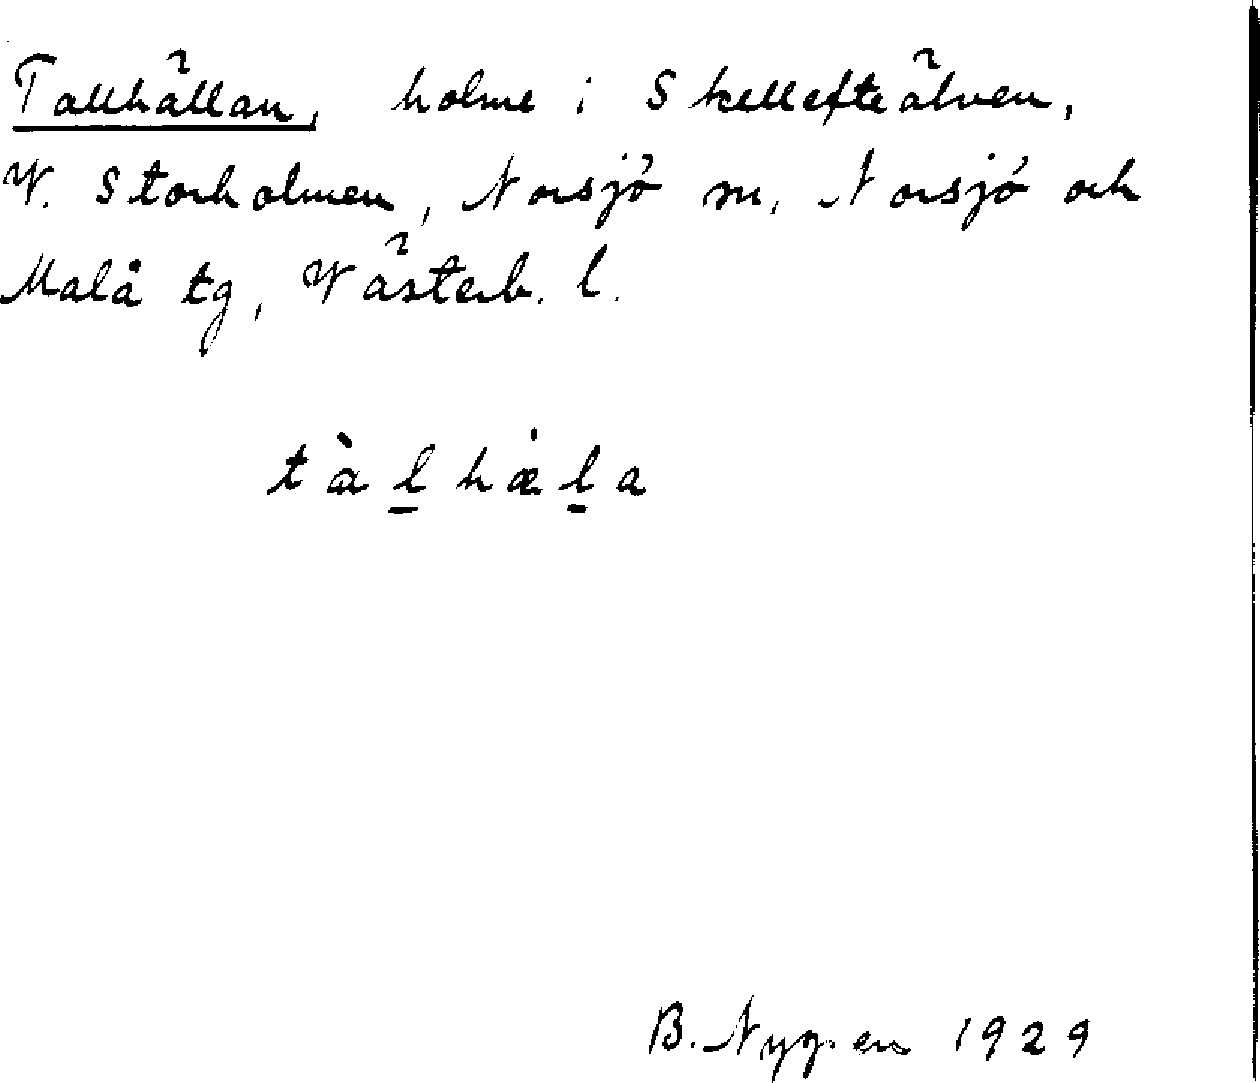 Tallhällan, holme i Skellefteälven,
V. Storholmen, Norsjö sn, Norsjö och
Malå tg, Västerb. l.
tàl̲hæ̇l̲a
B. Nygren 1929